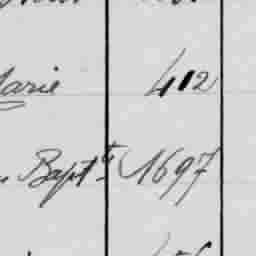 Marie 412
Bapt.te 1697